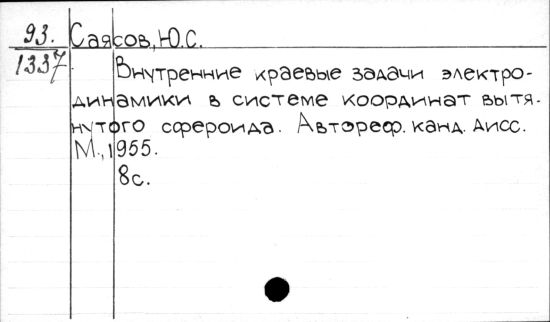 93. Саясов, Ю.С.
1337
Внутренние краевые задачи электро-
динамики в системе координат вытя-
нутого сфероида. Автореф. канд. дисс.
М., 1955.
8с.